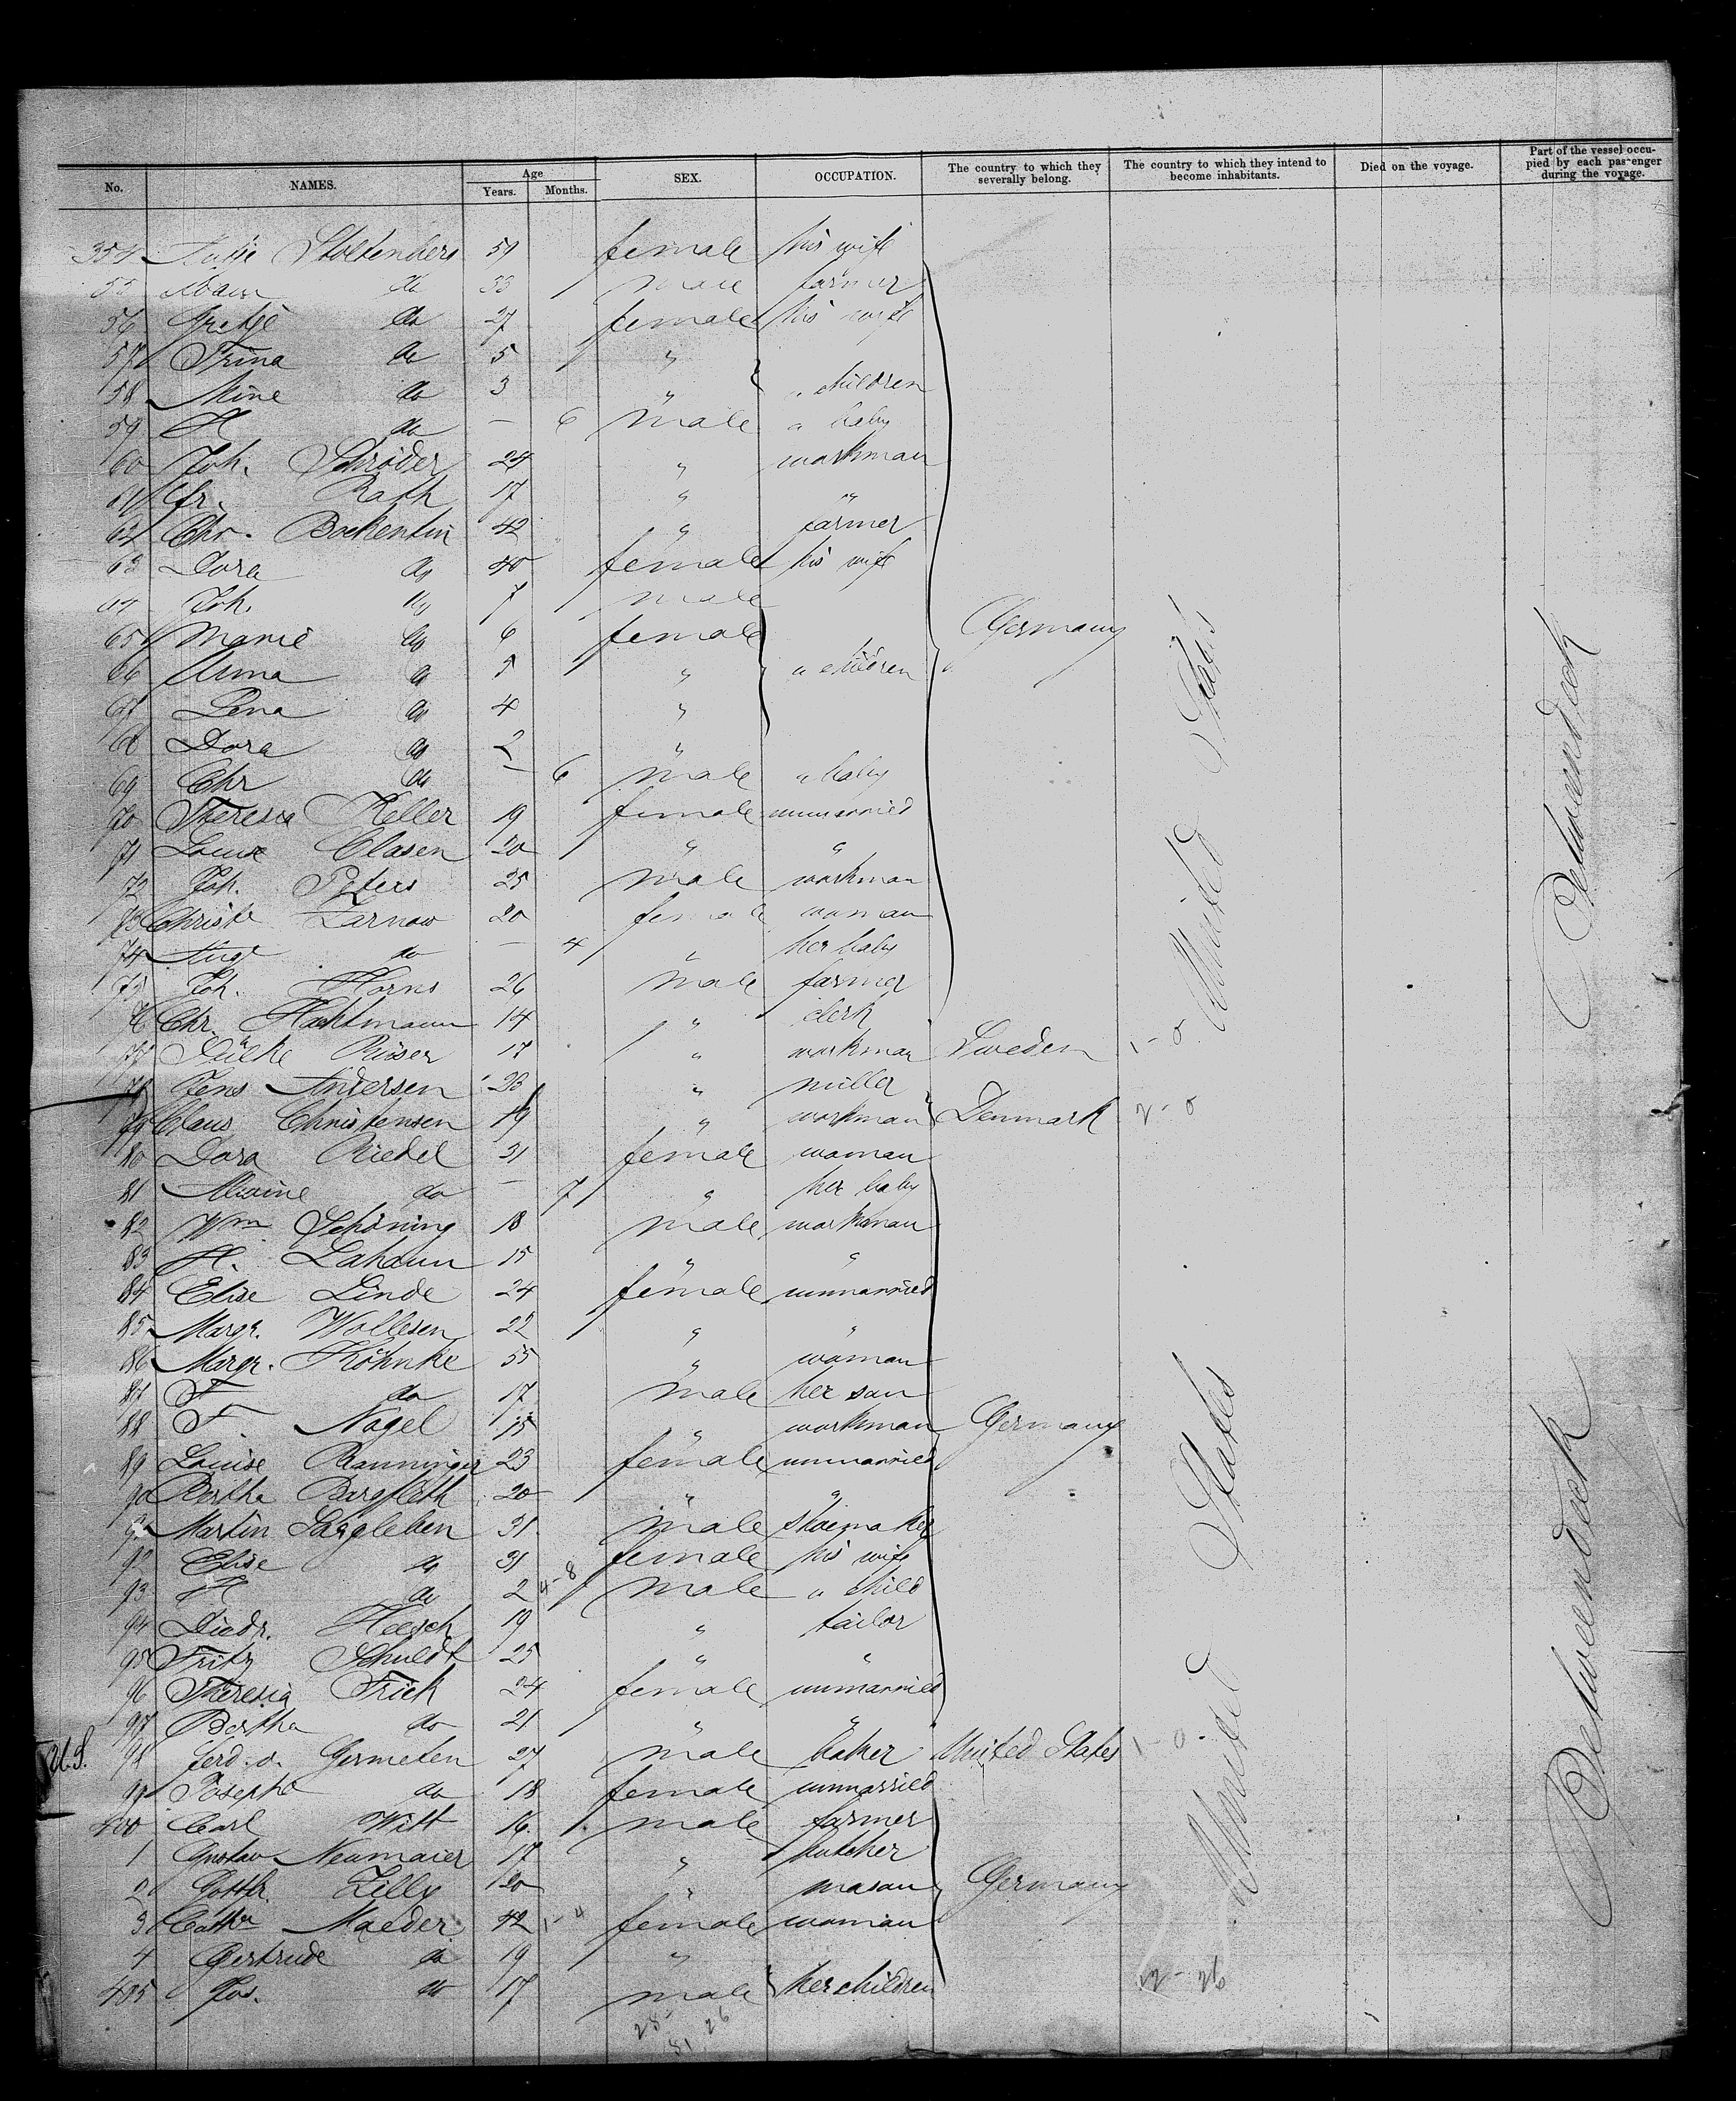 No. NAMES. Age Years. Months. SEX. OCCUPATION. The country to which they severally belong. The country to which they intend to become inhabitants. Died on the voyage. Part of the vessel occupied by each passenger during the voyage.
354 Stoltenberg 51 female his wife
55 do 33 male farmer
56 Gretje do 27 female his wife
57 Trina do 5 "
58 Mine do 3 " " children
59 H do — 6 male " baby
60 Joh. Schröder 24 " workman
61 Fr. Rath 17 " "
62 Chr. Bockentin 42 " farmer
63 Dora do 40 female his wife
64 Joh. do 7 male
65 Marie do 6 female Germany
66 Anna do 5 " " children
67 Lena do 4 "
68 Dora do 2 "
69 Chr do — 6 male " baby
70 Theresia Keller 19 female unmarried
71 Louise Clasen 20 " "
72 Joh. Peters 25 male workman
73 Christe Zarnow 20 female woman
74 Aug do — 4 " her baby
75 Joh. Horns 26 male farmer
76 Chr. Hachtmann 14 " clerk
77 Rüsser 17 " workman Sweden 1-0
78 Jens Andersen 23 " miller
79 Claus Christensen 19 " workman Denmark 2-0
80 Dora Riedel 31 female woman
81 Alwine do — 7 " her baby
82 Wm Schöning 18 male workman
83 H. Lahann 15 " "
84 Elise Linde 24 female unmarried
85 Margr. Wollesen 22 " "
86 Margr. Köhnke 55 " woman
87 F do 17 male her son
88 F. Nagel 15 " workman Germany
89 Louise Ranninger 23 female unmarried
90 Bertha Bargfleth 20 " "
91 Martin Sargleben 31 male shoemaker
92 Elise do 31 female his wife
93 H do 2 4-8 male " child
94 Diedr. Heesch 19 " tailor
95 Fritz Schuldt 25 " "
96 Theresia Frick 24 female unmarried
97 Bertha do 21 " "
U.S. 98 Ferd. v. Germeten 27 male baker United States 1-0
99 Josephe do 18 female unmarried
400 Carl Witt 16 male farmer
1 Gustav Neumaier 17 " butcher
2 Gottfr. Zilly 20 " mason Germany
3 Cathr Maeder 42 1-4 female woman
4 Gertrude do 19 "
405 Jos. do 17 male her children
United States
United States
Betweendeck
Betweendeck
22-26
25 26
51